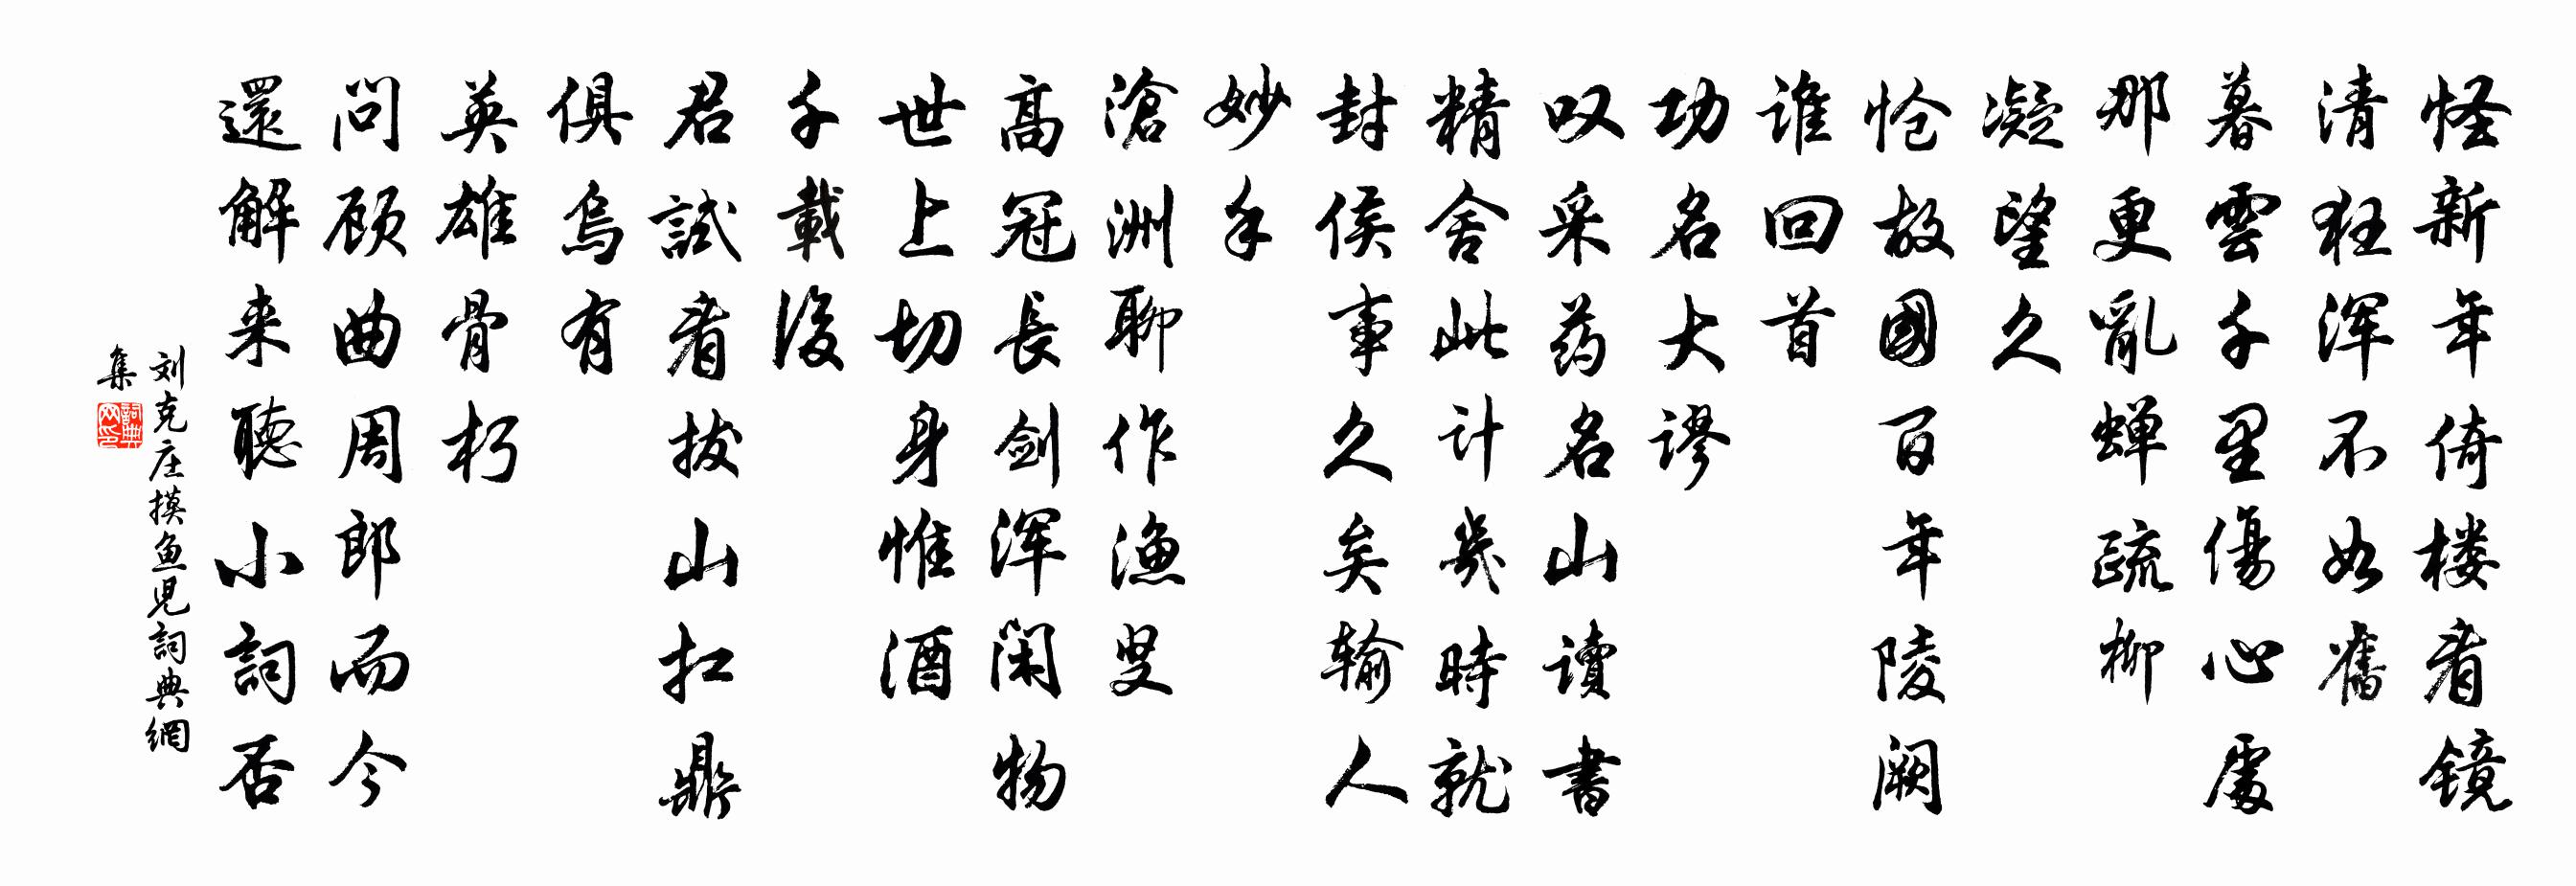 怪新年倚楼看镜
清狂浑不如舊
暮雲千里傷心處
那更亂蝉疏柳
凝望久
怆故國百年陵阙
谁回首
功名大谬
叹采药名山读書
精舍此计幾時就
封侯事久矣输人
妙手
滄洲聊作渔叟
高冠長剑浑闲物
世上切身惟酒
千載後
君試看拔山扛鼎
俱烏有
英雄骨朽
问顾曲周郎而今
還解来聽小詞否
刘克庄摸鱼児詞典網
集
詞典网印